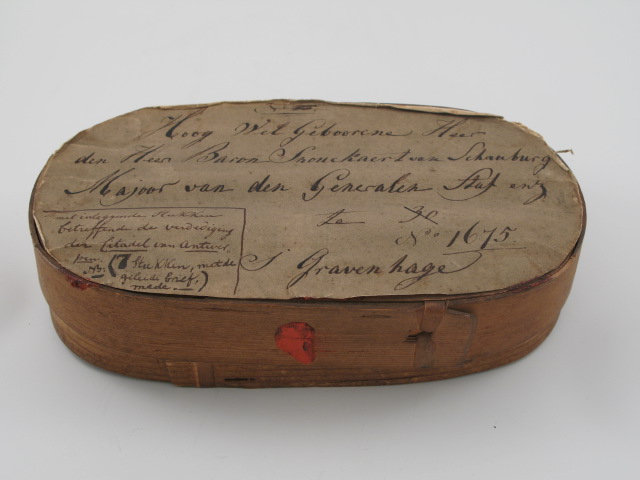 Hoog Wel Geboorene Heer
den Heer Baron Snouckaert van Schauburg
Majoor van den Generalen Staf enz
te
N.o 1675.
S Gravenhage
met inleggende Stukken
betreffende de verdediging
der Citadel van Antwer,
pen.
NB: (7 Stukken, met de
geleide brief,
mede.)